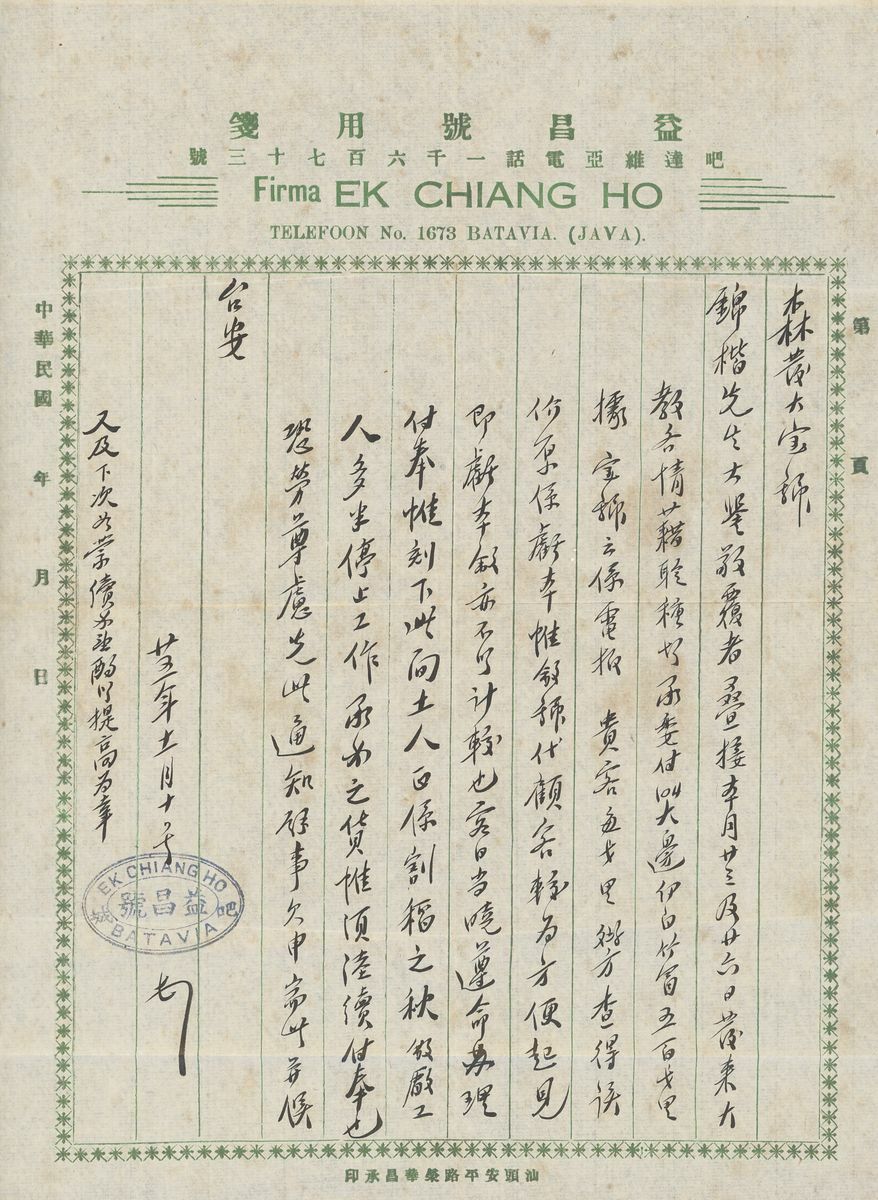 益昌號用箋
吧達維亞電話一千六百七十三號
Firma EK CHIANG HO
TELEFOON No. 1673 BATAVIA. (JAVA).
第 頁
森茂大宝號
錦楷先生大鑒敬覆者疊接本月廿三及廿六日茂来大
教各情藉聆種切承委付叫大邊伊白竹冒五百戈里
據宝號云係電报貴客
價原係虧本惟敝號代顧客較为方便起見
即虧本敝亦不以計較也客日当曉遵命办理
付奉惟刻下此间土人正係割稻之秋敝廠工
人多半停止工作承办之貨惟須陸續付奉也
恐勞尊慮先此通知餘事欠申耑此并候
台安
廿五年十一月十 号
又及下次如蒙續 提高为幸
中華民國 年 月 日
EK CHIANG HO
吧益昌號
BATAVIA
汕頭安平路榮華昌承印